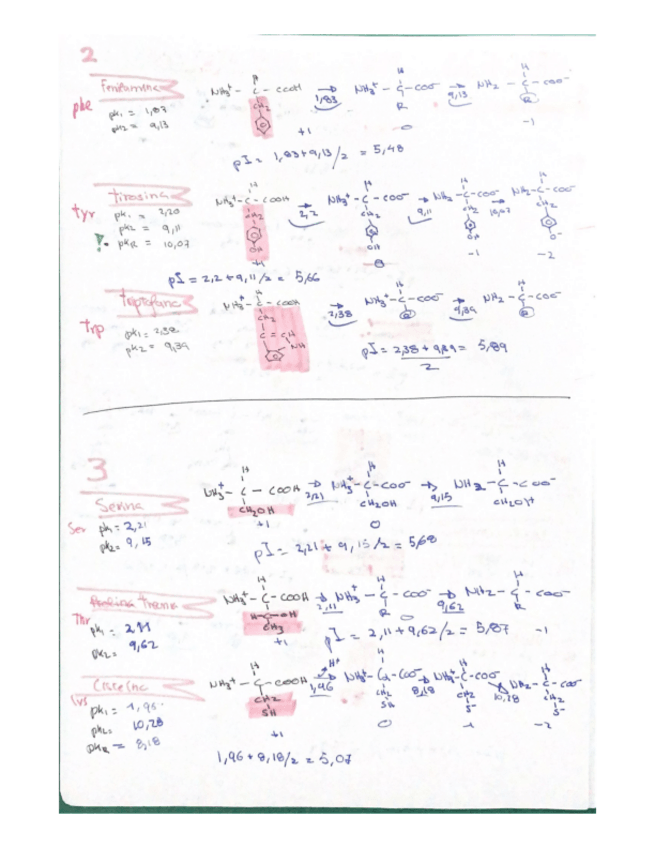 2
Fenilamina
phe
pk₁ = 1,83
pk₂ = 9,13
NH₃⁺ - C - COOH → 1,83 NH₃⁺ - C - COO⁻ → 9,13 NH₂ - C - COO⁻
H
CH₂
R
+1 0 -1
pI = 1,83+9,13/2 = 5,48
tirosina
tyr
pk₁ = 2,20
pk₂ = 9,11
pkR = 10,07
NH₃⁺ - C - COOH → 2,2 NH₃⁺ - C - COO⁻ → 9,11 NH₂ - C - COO⁻ → 10,07 NH₂ - C - COO⁻
CH₂ CH₂ CH₂ CH₂
OH OH OH O⁻
+1 0 -1 -2
pI = 2,2+9,11/2 = 5,66
triptofano
Trp
pk₁ = 2,38
pk₂ = 9,39
NH₃⁺ - C - COOH → 2,38 NH₃⁺ - C - COO⁻ → 9,39 NH₂ - C - COO⁻
CH₂
C = CH
NH
R R
pI = 2,38 + 9,39 = 5,89
2
3
Serina
Ser
pk₁ = 2,21
pk₂ = 9,15
NH₃⁺ - C - COOH → 2,21 NH₃⁺ - C - COO⁻ → 9,15 NH₂ - C - COO⁻
CH₂OH CH₂OH CH₂OH
+1 0
pI = 2,21 + 9,15/2 = 5,68
Treonina
Thr
pk₁ = 2,11
pk₂ = 9,62
NH₃⁺ - C - COOH → 2,11 NH₃⁺ - C - COO⁻ → 9,62 NH₂ - C - COO⁻
H - C - OH R R
CH₃
+1 0 -1
pI = 2,11 + 9,62/2 = 5,87
Cisteína
pk₁ = 1,96
pk₂ = 10,28
pkR = 8,18
NH₃⁺ - C - COOH → H⁺ 1,96 NH₃⁺ - C - COO⁻ → 8,18 NH₃⁺ - C - COO⁻ → 10,28 NH₂ - C - COO⁻
CH₂ CH₂ CH₂ CH₂
SH SH S⁻ S⁻
+1 0 -1 -2
1,96 + 8,18/2 = 5,07